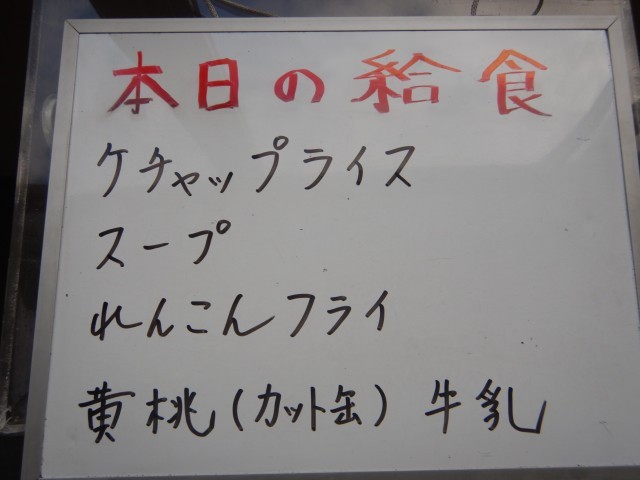 本日の給食
ケチャップライス
スープ
れんこんフライ
黄桃(カット缶) 牛乳